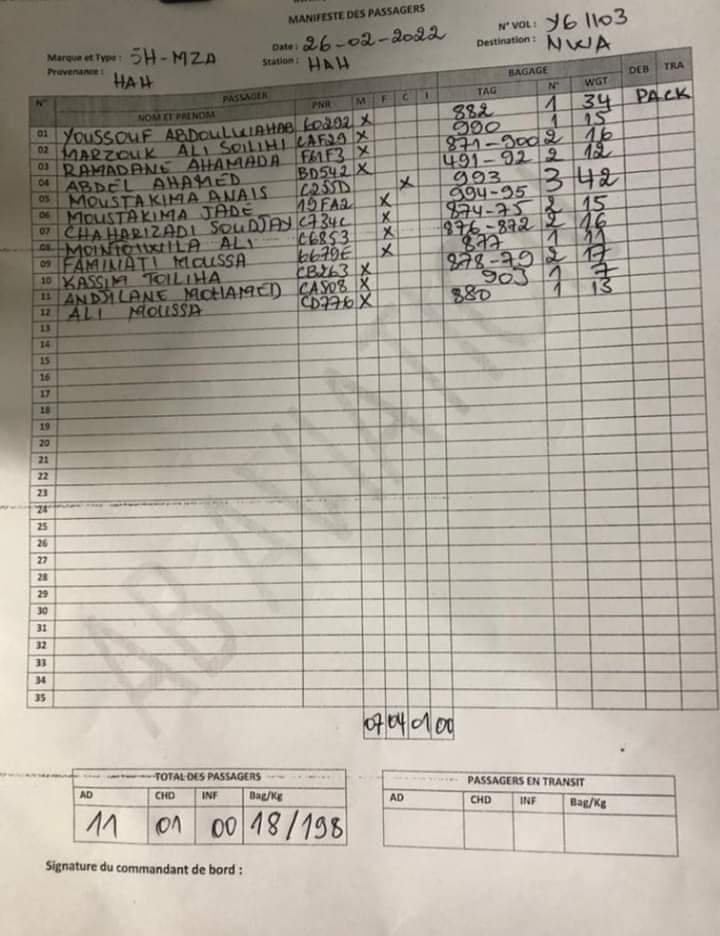 MANIFESTE DES PASSAGERS
Marque et Type : 5H-MZA Date : 26-02-2022 N° VOL : Y6 1103
Provenance : HAH Station : HAH Destination : NWA
N° PASSAGER BAGAGE DEB TRA
NOM ET PRENOM PNR M F C I TAG N° WGT
01 YOUSSOUF ABDOULWAHAB 60292 X 882 1 34 PACK
02 MARZOUK ALI SOILIHI CAF29 X 990 1 15
03 RAMADANE AHAMADA F61F3 X 871-900 2 16
04 ABDEL AHAMED BD542 X 491-92 2 12
05 MOUSTAKIMA ANAIS C255D X 993 3 42
06 MOUSTAKIMA JADE 19FA2 X 994-95
07 CHAHARIZADI SOUDJAY C734C X 874-75 2 15
08 ALI C6853 X 876-872 2 16
09 FAMINATI MOUSSA 6679E X 877 1 11
10 KASSIM TOILIHA CB263 X 878-79 2 17
11 ANDJILANE MOHAMED CA508 X 903 1 7
12 ALI MOUSSA CD776 X 880 1 13
13
14
15
16
17
18
19
20
21
22
23
24
25
26
27
28
29
30
31
32
33
34
35
AB AVIATION
07 04 01 00
TOTAL DES PASSAGERS
AD CHD INF Bag/Kg
11 01 00 18/198
PASSAGERS EN TRANSIT
AD CHD INF Bag/Kg
Signature du commandant de bord :